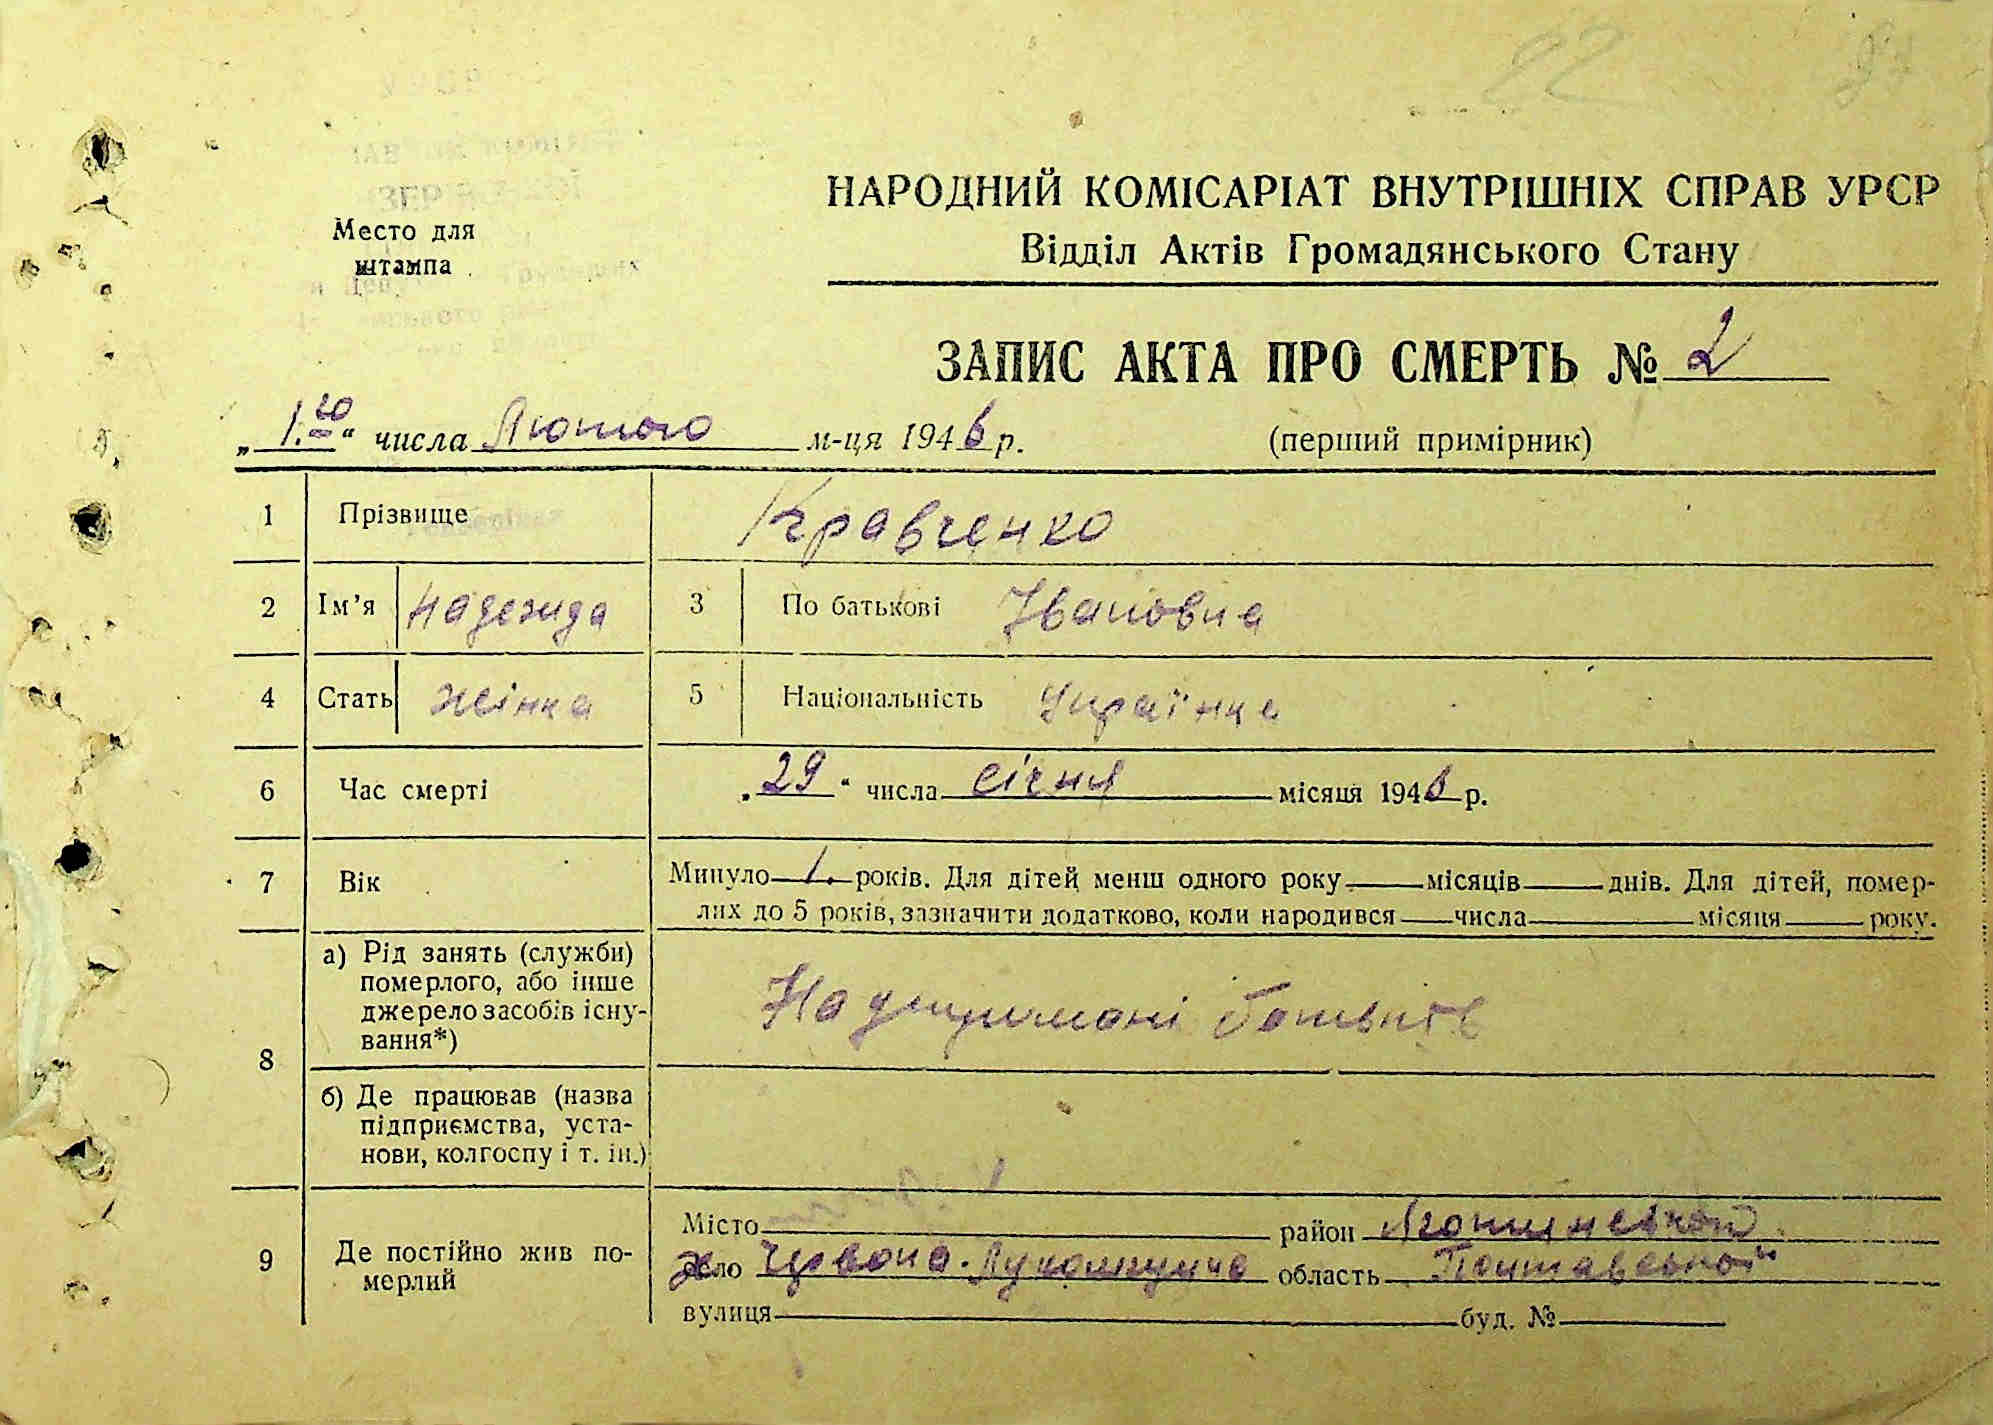 22
Место для
штампа
НАРОДНИЙ КОМІСАРІАТ ВНУТРІШНІХ СПРАВ УРСР
Відділ Актів Громадянського Стану
ЗАПИС АКТА ПРО СМЕРТЬ № 2
„ 1.го “ числа Лютого м-ця 1946 р. (перший примірник)
1 Прізвище Кравченко
2 Ім’я Надежда 3 По батькові Івановна
4 Стать жінка 5 Національність Українка
6 Час смерті „ 29 “ числа січня місяця 1946 р.
7 Вік Минуло 1. років. Для дітей менш одного року місяців днів. Для дітей, помер-
лих до 5 років, зазначити додатково, коли народився числа місяця року.
8 а) Рід занять (служби)
померлого, або інше
джерело засобів існу-
вання*)
На утримані батьків
б) Де працював (назва
підприємства, уста-
нови, колгоспу і т. ін.)
9 Де постійно жив по-
мерлий
Місто район
село Червона область Полтавської
вулиця буд. №